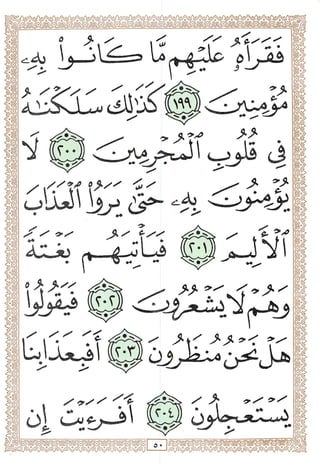 فَقَرَأَهُۥ عَلَيْهِم مَّا كَانُوا۟ بِهِۦ
مُؤْمِنِينَ ١٩٩ كَذَٰلِكَ سَلَكْنَـٰهُ
فِى قُلُوبِ ٱلْمُجْرِمِينَ ٢٠٠ لَا
يُؤْمِنُونَ بِهِۦ حَتَّىٰ يَرَوُا۟ ٱلْعَذَابَ
ٱلْأَلِيمَ ٢٠١ فَيَأْتِيَهُم بَغْتَةً
وَهُمْ لَا يَشْعُرُونَ ٢٠٢ فَيَقُولُوا۟
هَلْ نَحْنُ مُنظَرُونَ ٢٠٣ أَفَبِعَذَابِنَا
يَسْتَعْجِلُونَ ٢٠٤ أَفَرَءَيْتَ إِن
٥٠